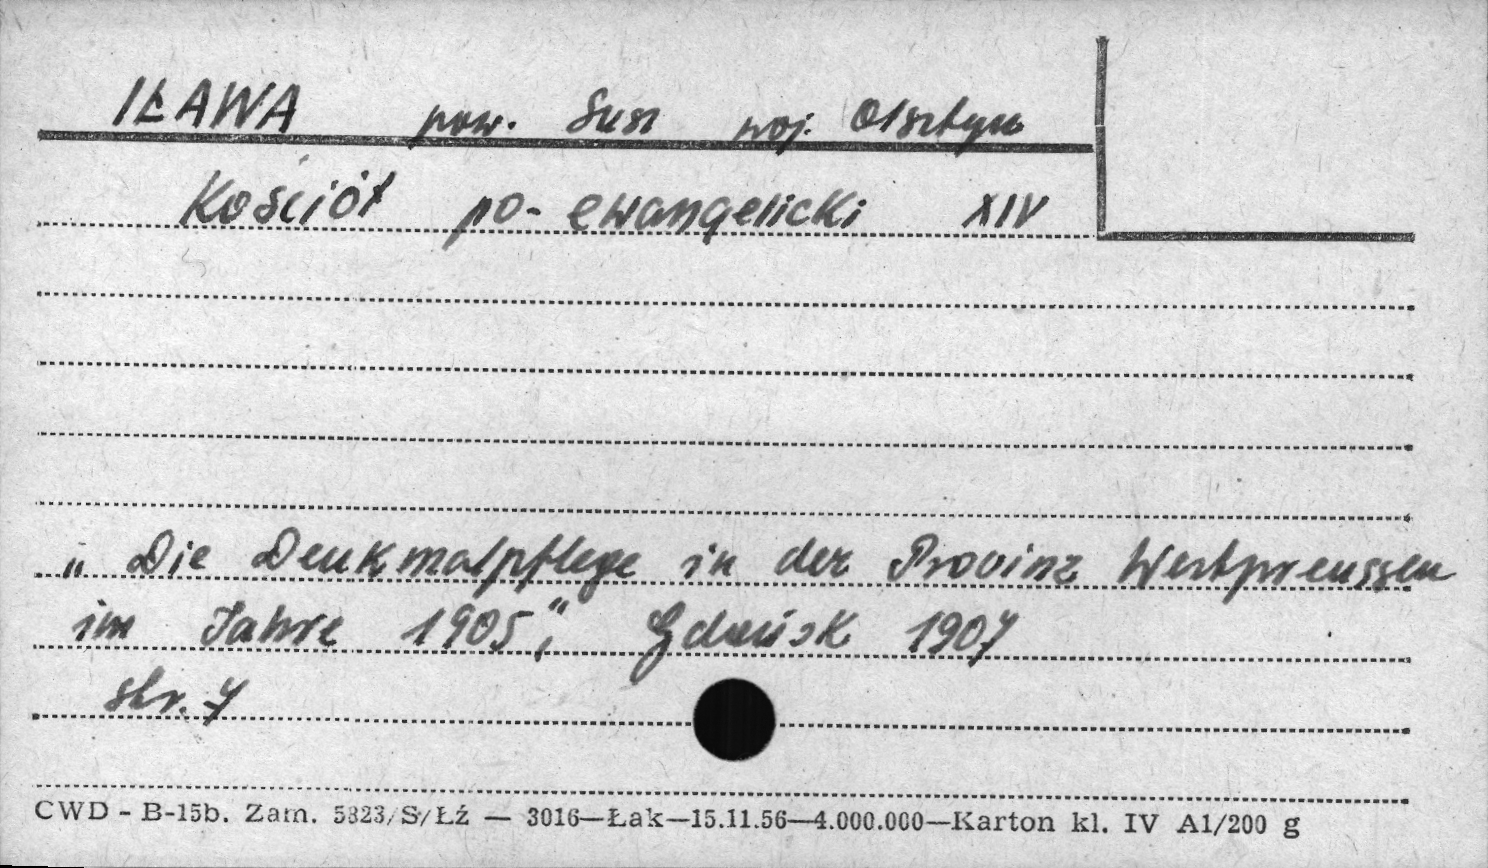 IŁAWA pow. Susz woj. Olsztyn
Kościół po-ewangelicki XIV
„Die Denkmalpflege in der Provinz Westpreussen
im Jahre 1905", Gdańsk 1907
str. 7
CWD - B-15b. Zam. 5823/S/Łź — 3016—Łak—15.11.56—4.000.000—Karton kl. IV A1/200 g